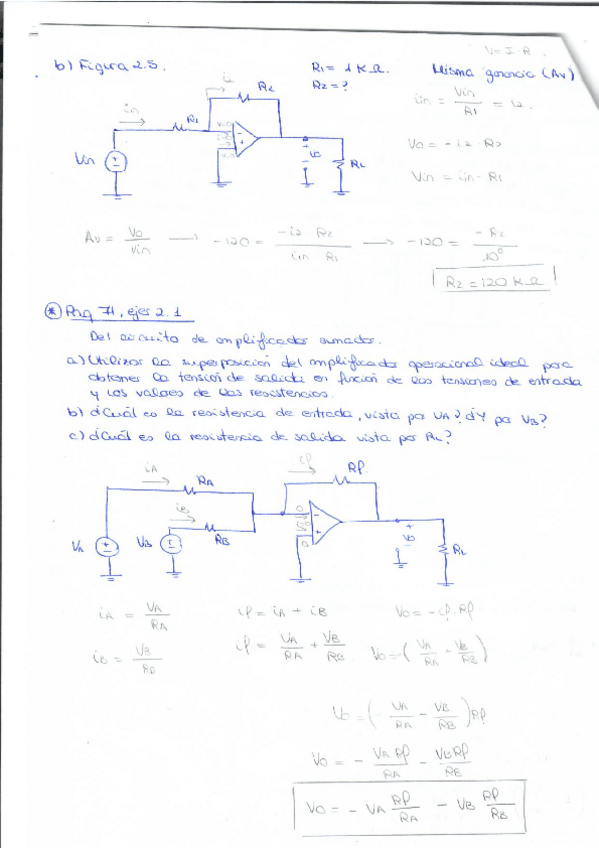 V = I · R.
b) Figura 2.5.
R1 = 1 KΩ.
R2 = ?
Misma ganancia (Av)
iin = Vin / R1 = i2.
Vo = - i2 · R2
Vin = iin · R1
iin
R1
i2
R2
Vin
Vo
RL
Av = Vo / Vin → -120 = -i2 R2 / iin R1 → -120 = - R2 / 10
R2 = 120 KΩ
* Pag 71, ejer 2.1
Del circuito de amplificador sumador.
a) Utilizar la superposición del amplificador operacional ideal para
obtener la tensión de salida en función de las tensiones de entrada
y los valores de las resistencias.
b) ¿Cuál es la resistencia de entrada, vista por VA? ¿Y por VB?
c) ¿Cuál es la resistencia de salida vista por RL?
iA
RA
iB
RB
if
Rf
VA
VB
Vo
RL
iA = VA / RA
if = iA + iB
Vo = - if · Rf
iB = VB / RB
if = VA / RA + VB / RB
Vo = - ( VA / RA + VB / RB )
Vo = ( - VA / RA - VB / RB ) Rf
Vo = - VA Rf / RA - VB Rf / RB
Vo = - VA Rf / RA - VB Rf / RB